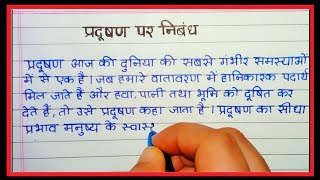 प्रदूषण पर निबंध
प्रदूषण आज की दुनिया की सबसे गंभीर समस्याओं
में से एक है। जब हमारे वातावरण में हानिकारक पदार्थ
मिल जाते हैं और हवा, पानी तथा भूमि को दूषित कर
देते हैं, तो उसे प्रदूषण कहा जाता है। प्रदूषण का सीधा
प्रभाव मनुष्य के स्वास्